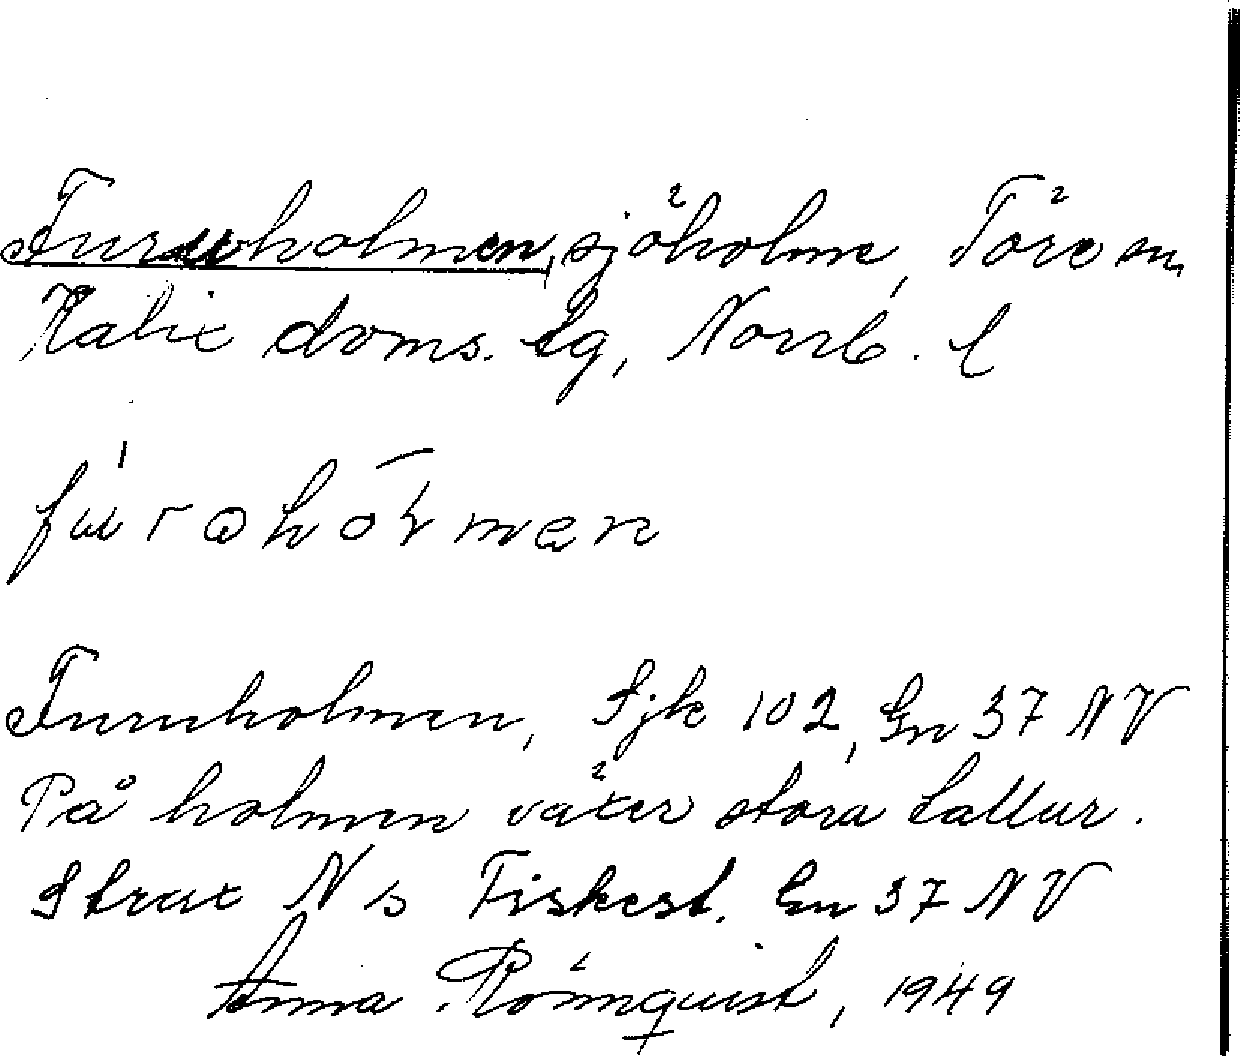 Furuholmen, sjöholme, Töre sn,
Kalix doms. tg, Norrb. l
furohòłmen
Furuholmen, Sjk 102, Gn 37 NV
På holmen växer stora tallur.
Strax N s Fiskest. Gn 37 NV
Anna Rönnquist, 1949